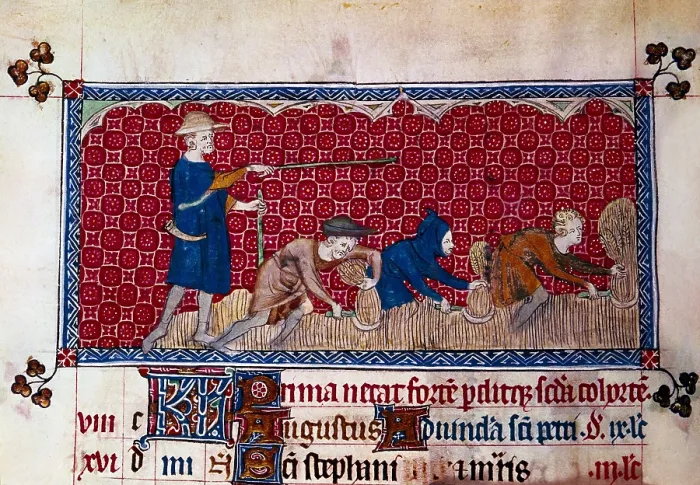 KL Prima necat fortē pditqȝ scd̄a cohortē
viii c Augustus Aduincl̄a sc̄i petri ix lc̄
xvi d iiii Sc̄i stephani iii lc̄